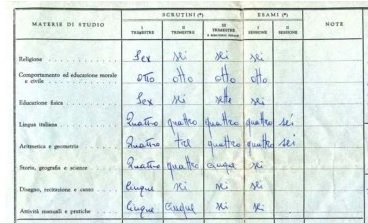 SCRUTINI (*) ESAMI (*)
MATERIE DI STUDIO I TRIMESTRE II TRIMESTRE III TRIMESTRE I SESSIONE II SESSIONE NOTE
Religione Sex sei sei sei
Comportamento ed educazione morale e civile otto otto otto otto
Educazione fisica Sex sei sette sei
Lingua italiana Quattro quattro quattro quattro sei
Aritmetica e geometria Quattro tre quattro quattro sei
Storia, geografia e scienze Quattro quattro cinque sei
Disegno, recitazione e canto Cinque sei sei sei
Attività manuali e pratiche Cinque Cinque sei sei